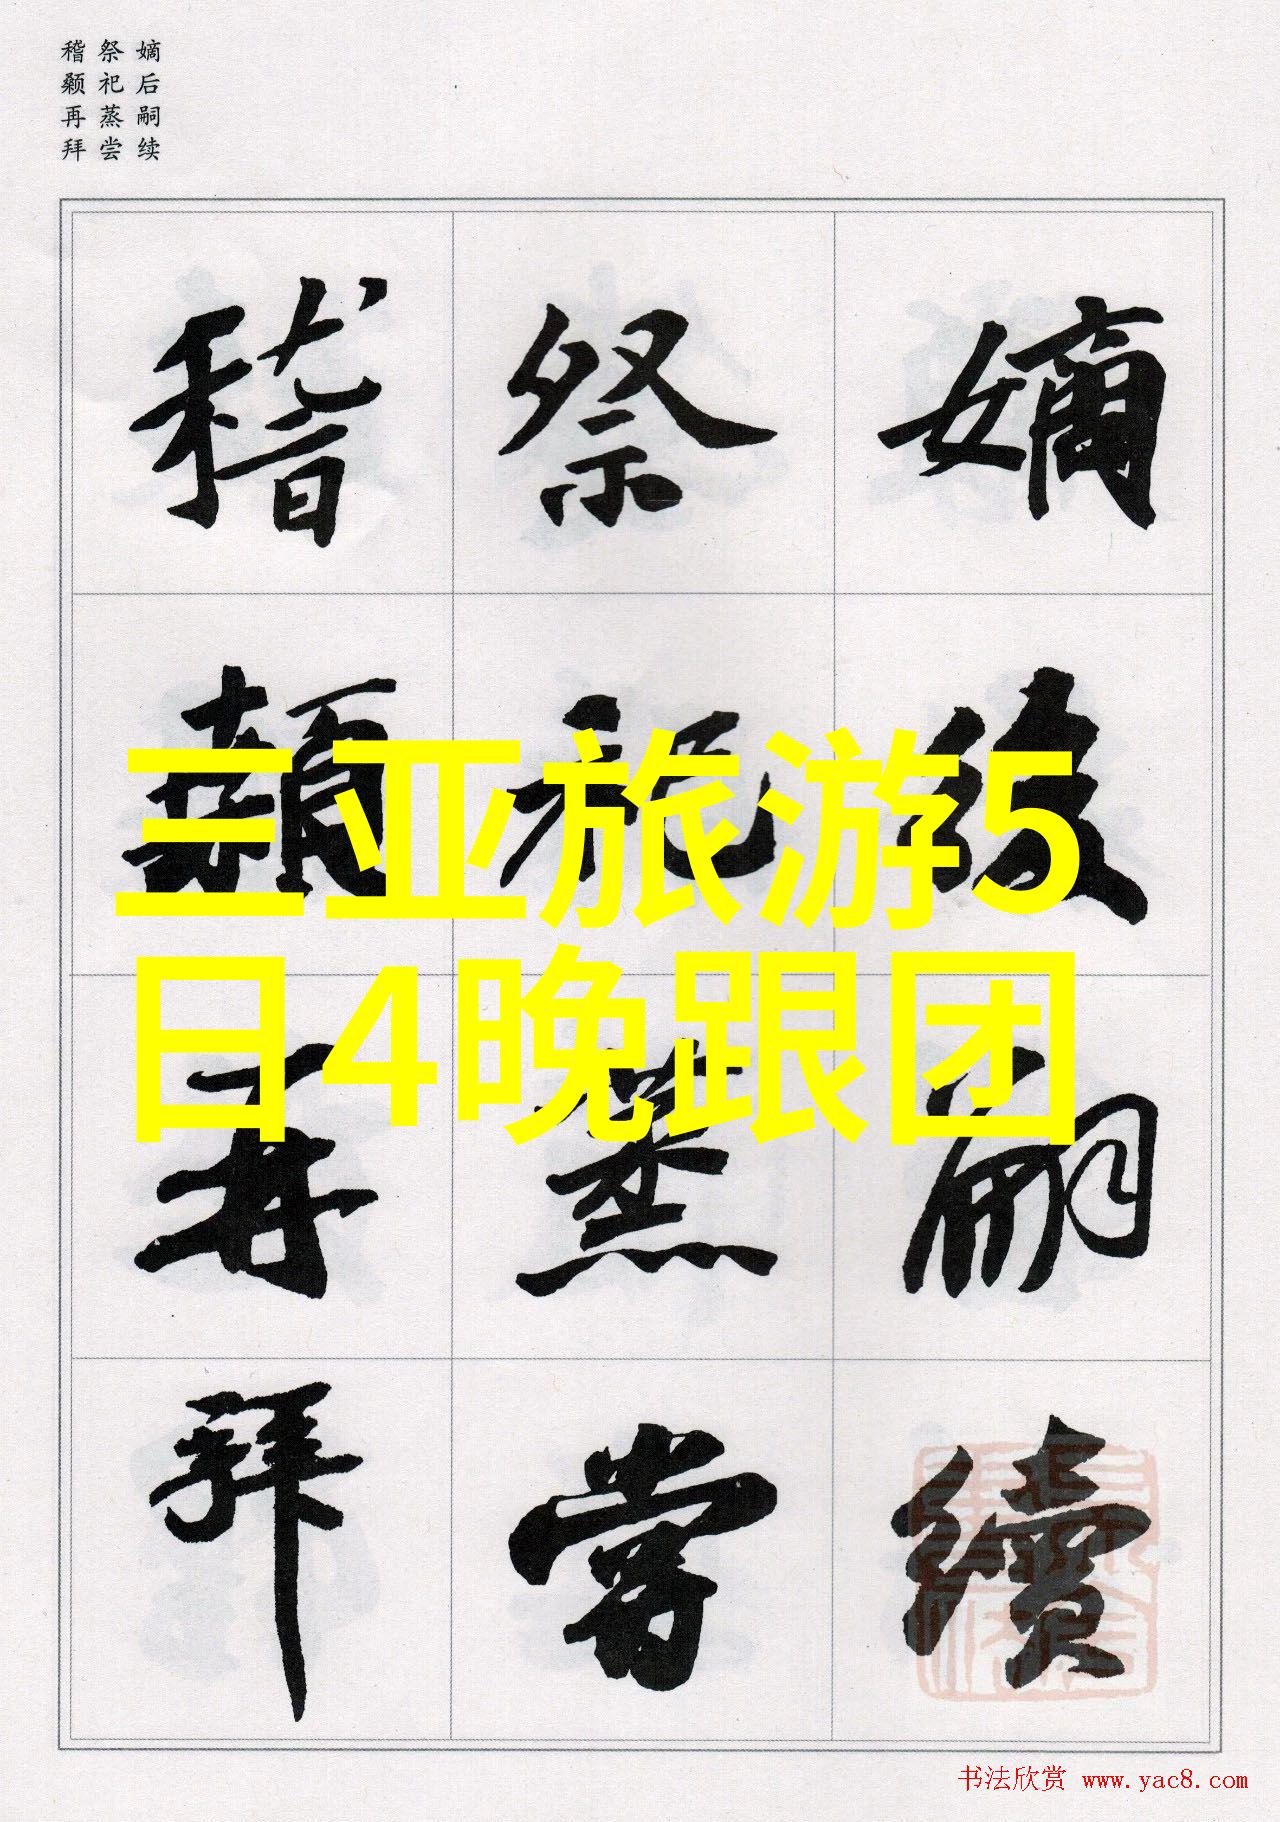 嫡后嗣续
祭祀蒸尝
稽颡再拜
嫡後嗣續
祭祀蒸嘗
稽顙再拜
三亚旅游5
日4晚跟团
书法欣赏 www.yac8.com